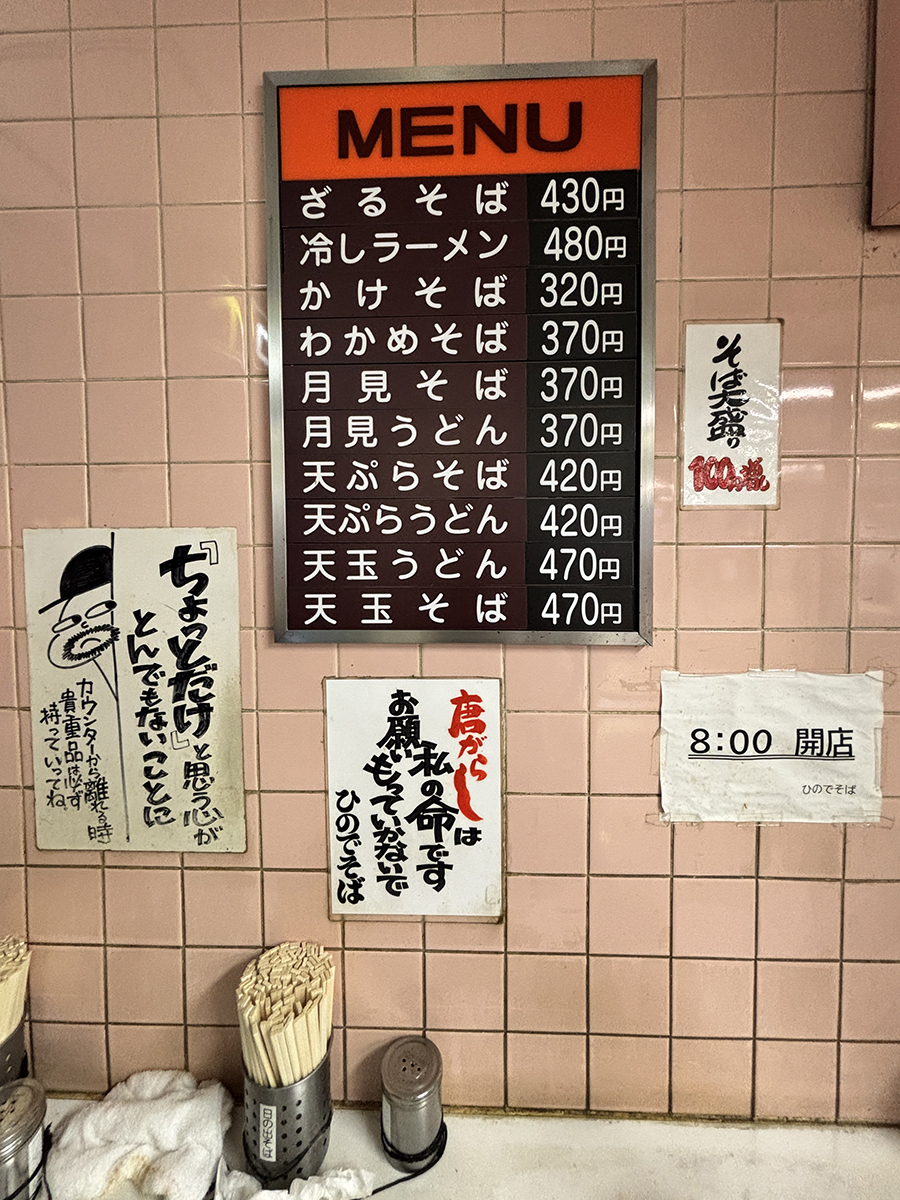 MENU
ざるそば 430円
冷しラーメン 480円
かけそば 320円
わかめそば 370円
月見そば 370円
月見うどん 370円
天ぷらそば 420円
天ぷらうどん 420円
天玉うどん 470円
天玉そば 470円
そば大盛り
100円増
『ちょっとだけ』と思う心が
とんでもないことに
カウンターから離れる時
貴重品は必ず
持っていってね
唐がらしは
私の命です
お願いもっていかないで
ひのでそば
8:00 開店
ひのでそば
日の出そば